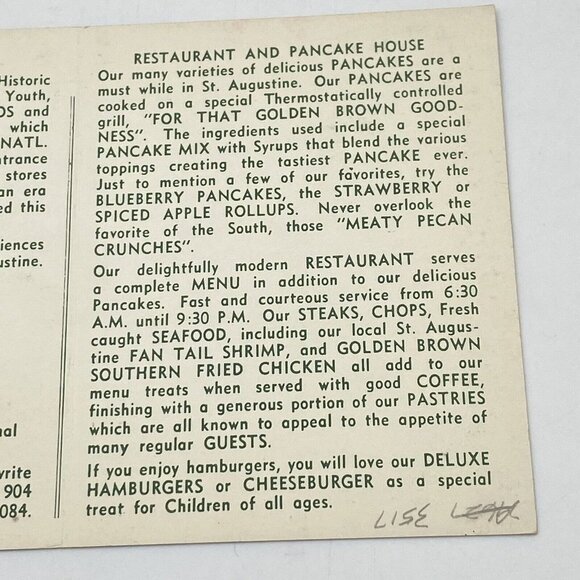 Historic
Youth,
OS and
which
NATL.
ntrance
stores
an era
ed this
iences
ustine.
nal
rite
904
084.
RESTAURANT AND PANCAKE HOUSE
Our many varieties of delicious PANCAKES are a
must while in St. Augustine. Our PANCAKES are
cooked on a special Thermostatically controlled
grill, "FOR THAT GOLDEN BROWN GOOD-
NESS". The ingredients used include a special
PANCAKE MIX with Syrups that blend the various
toppings creating the tastiest PANCAKE ever.
Just to mention a few of our favorites, try the
BLUEBERRY PANCAKES, the STRAWBERRY or
SPICED APPLE ROLLUPS. Never overlook the
favorite of the South, those "MEATY PECAN
CRUNCHES".
Our delightfully modern RESTAURANT serves
a complete MENU in addition to our delicious
Pancakes. Fast and courteous service from 6:30
A.M. until 9:30 P.M. Our STEAKS, CHOPS, Fresh
caught SEAFOOD, including our local St. Augus-
tine FAN TAIL SHRIMP, and GOLDEN BROWN
SOUTHERN FRIED CHICKEN all add to our
menu treats when served with good COFFEE,
finishing with a generous portion of our PASTRIES
which are all known to appeal to the appetite of
many regular GUESTS.
If you enjoy hamburgers, you will love our DELUXE
HAMBURGERS or CHEESEBURGER as a special
treat for Children of all ages.